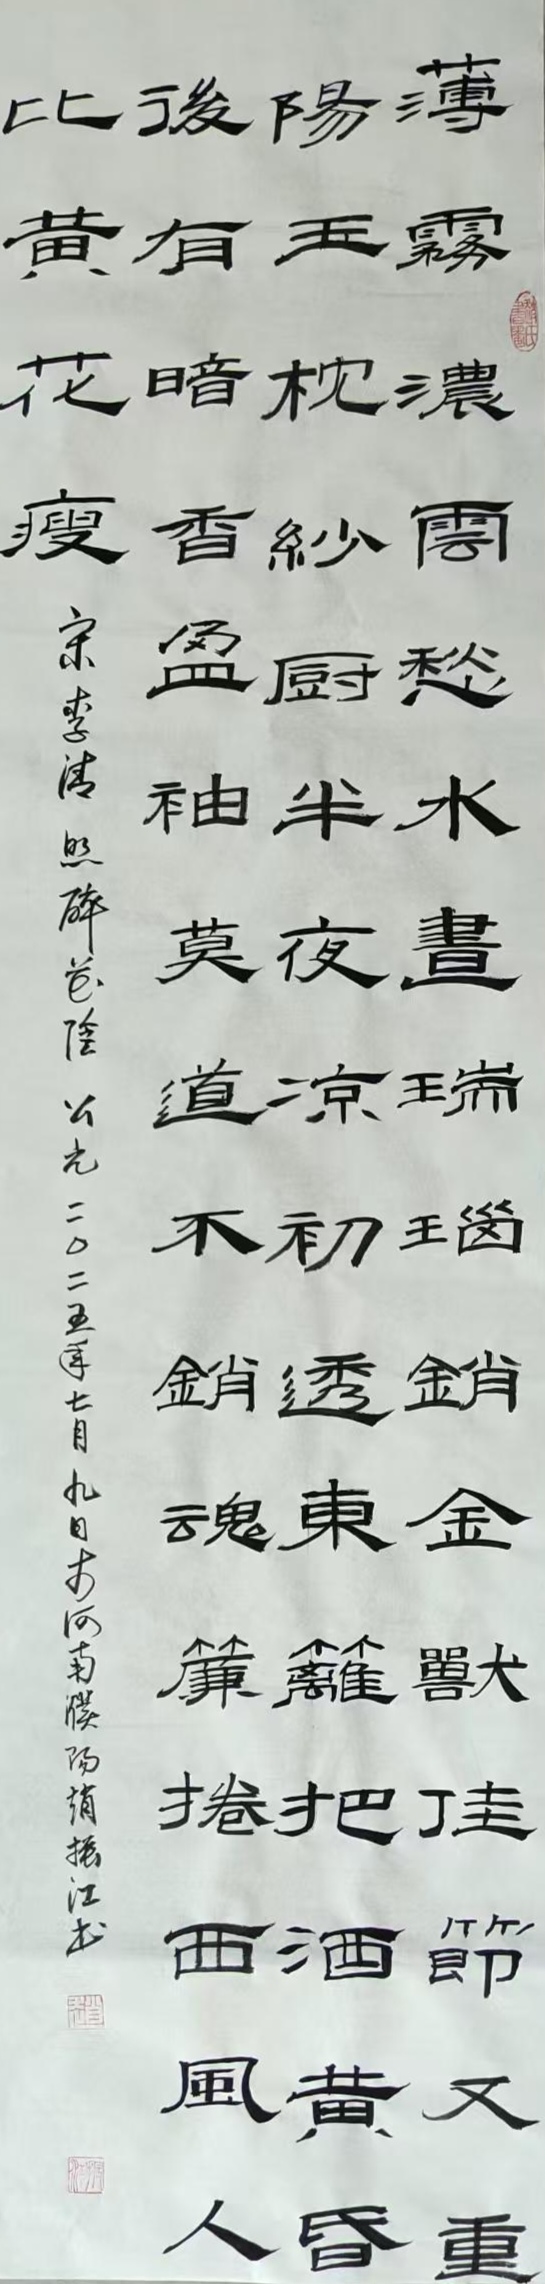 薄霧濃雲愁水晝瑞瑙銷金獸佳節又重
陽玉枕紗厨半夜凉初透東籬把酒黄昏
後有暗香盈袖莫道不銷魂簾捲西風人
比黄花瘦
宋李清照醉花陰 公元二〇二五年七月九日於河南濮陽趙振江書